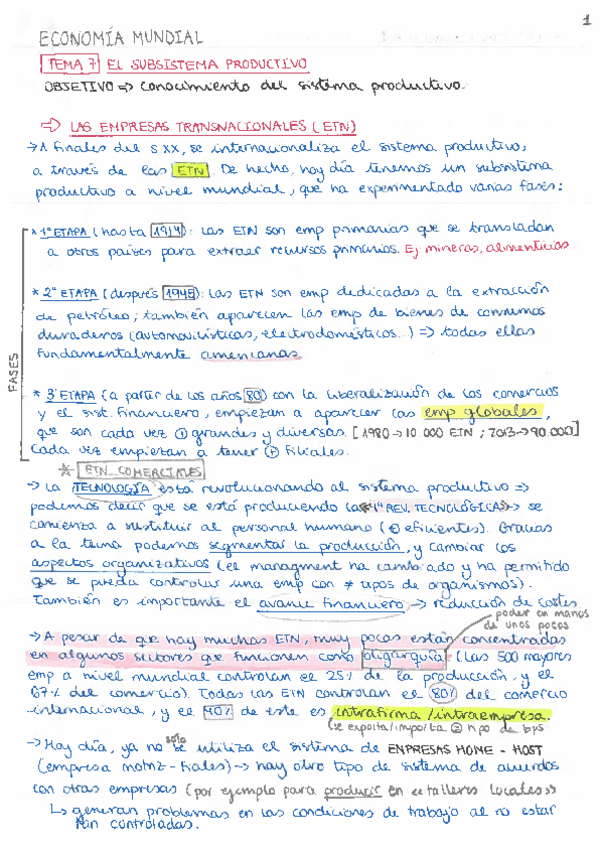 1
ECONOMÍA MUNDIAL
TEMA 7 EL SUBSISTEMA PRODUCTIVO
OBJETIVO => conocimiento del sistema productivo.
=> LAS EMPRESAS TRANSNACIONALES (ETN)
→ A finales del s XX, se internacionaliza el sistema productivo,
a través de las ETN. De hecho, hoy día tenemos un subsistema
productivo a nivel mundial, que ha experimentado varias fases:
FASES
* 1ª ETAPA (hasta 1914): Las ETN son emp primarias que se transladan
a otros países para extraer recursos primarios. Ej mineras, alimenticias
* 2ª ETAPA (después 1945): Las ETN son emp dedicadas a la extracción
de petróleo; también aparecen las emp de bienes de consumos
duraderos (automovilísticas, electrodomésticos...) => todas ellas
fundamentalmente americanas
* 3ª ETAPA (a partir de los años 80) con la liberalización de los comercios
y el sist. financiero, empiezan a aparecer las emp globales,
que son cada vez ⊕ grandes y diversas. [1980→10 000 ETN ; 2013→90.000]
Cada vez empiezan a tener ⊕ filiales.
* ETN COMERCIALES
→ La TECNOLOGÍA está revolucionando al sistema productivo =>
podemos decir que se está produciendo la «4ª REV. TECNOLÓGICA» → se
comienza a sustituir al personal humano (⊕ eficientes). Gracias
a la tecna podemos segmentar la producción, y cambiar los
aspectos organizativos (el managment ha cambiado y ha permitido
que se pueda controlar una emp con ≠ tipos de organismos).
También es importante el avance financiero → reducción de costes
poder en manos
de unos pocos
→ A pesar de que hay muchas ETN, muy pocas están concentradas
en algunos sectores que funcionen como oligarquía (Las 500 mayores
emp a nivel mundial controlan el 25% de la producción, y el
67% del comercio). Todas las ETN controlan el 80% del comercio
internacional, y el 40% de este es intrafirma/intraempresa.
(se exporta/importa tipo de bys
→ Hoy día, ya no sólo se utiliza el sistema de ENPRESAS HOME - HOST
(empresa matriz - filiales) → hay otro tipo de sistema de acuerdos
con otras empresas (por ejemplo para producir en «talleres locales»)
↳ generan problemas en las condiciones de trabajo al no estar
tan controladas.